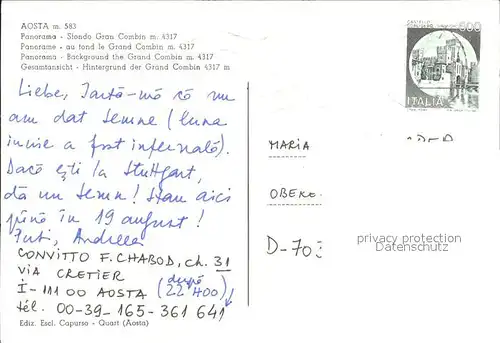 AOSTA m. 583
Panorama - Sfondo Gran Combin m. 4317
Panorame - au fond le Grand Combin m. 4317
Panorama - Background the Grand Combin m. 4317
Gesamtansicht - Hintergrund der Grand Combin 4317 m
CASTELLO
600
ITALIA
Liebe, Iartă-mă că nu
am dat semne (luna
iunie a fost infernală).
Dacă ești la Stuttgart,
dă un semn! Stau aici
până în 19 august!
Andreea
CONVITTO F. CHABOD, ch. 31
VIA CRETIER
I-11100 AOSTA (după 22 h00)
tél. 00-39-165-361 641
MARIA
OBERE
D-70
privacy protection
Datenschutz
Ediz. Escl. Capurso - Quart (Aosta)